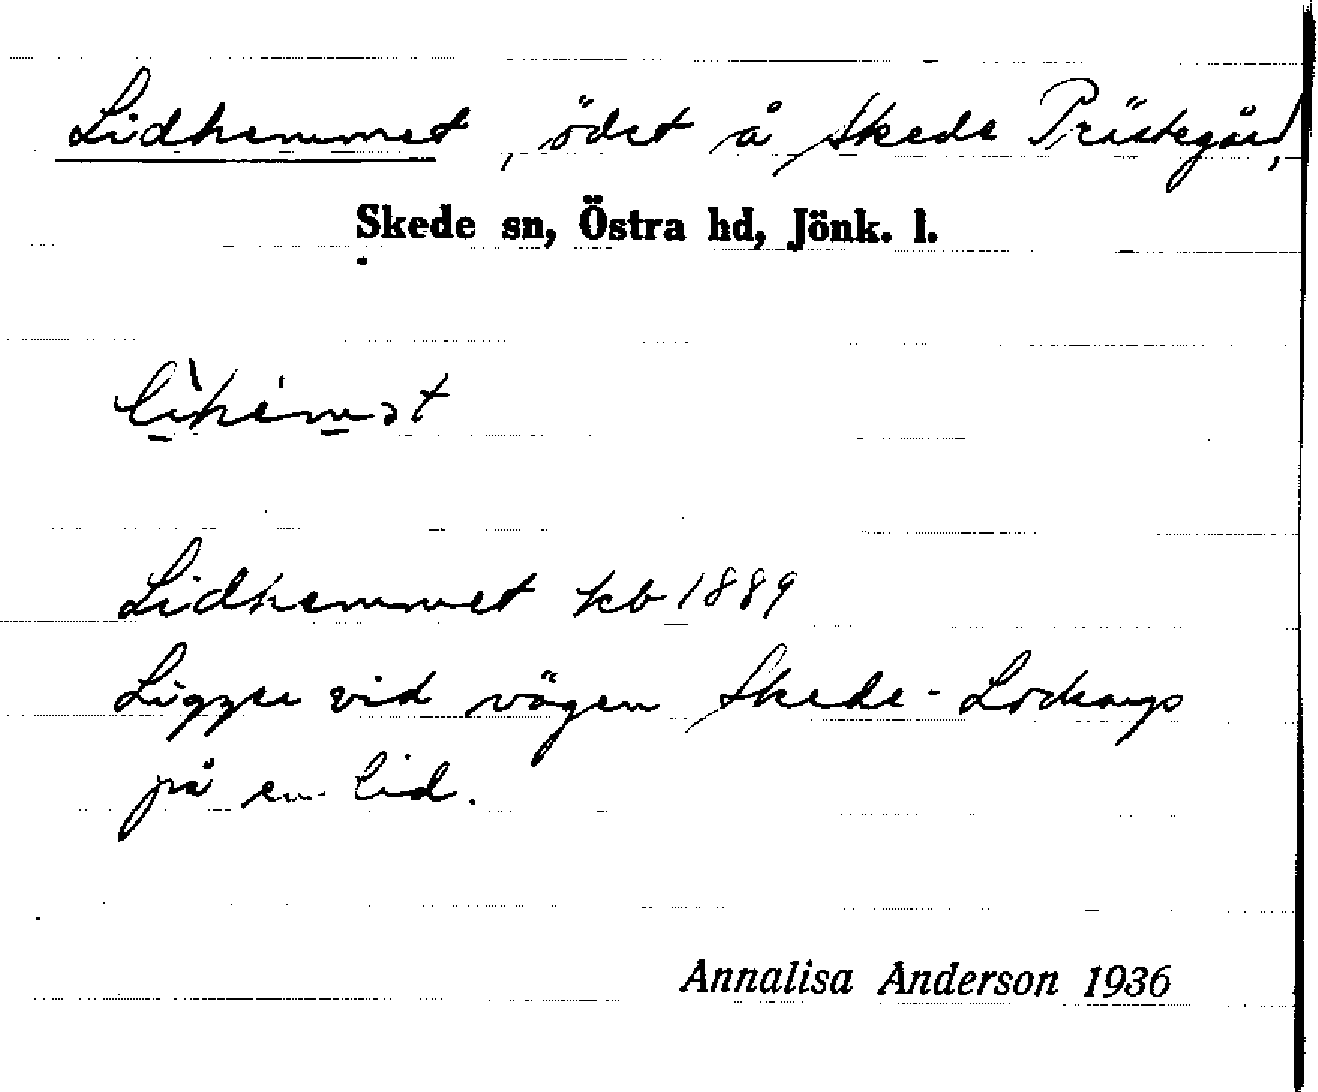 Lidhemmet, ödet å Skede Prästegård,
Skede sn, Östra hd, Jönk. l.
Lidhemmet kb 1889
Ligger vid vägen Skede-
på en lid.
Annalisa Anderson 1936